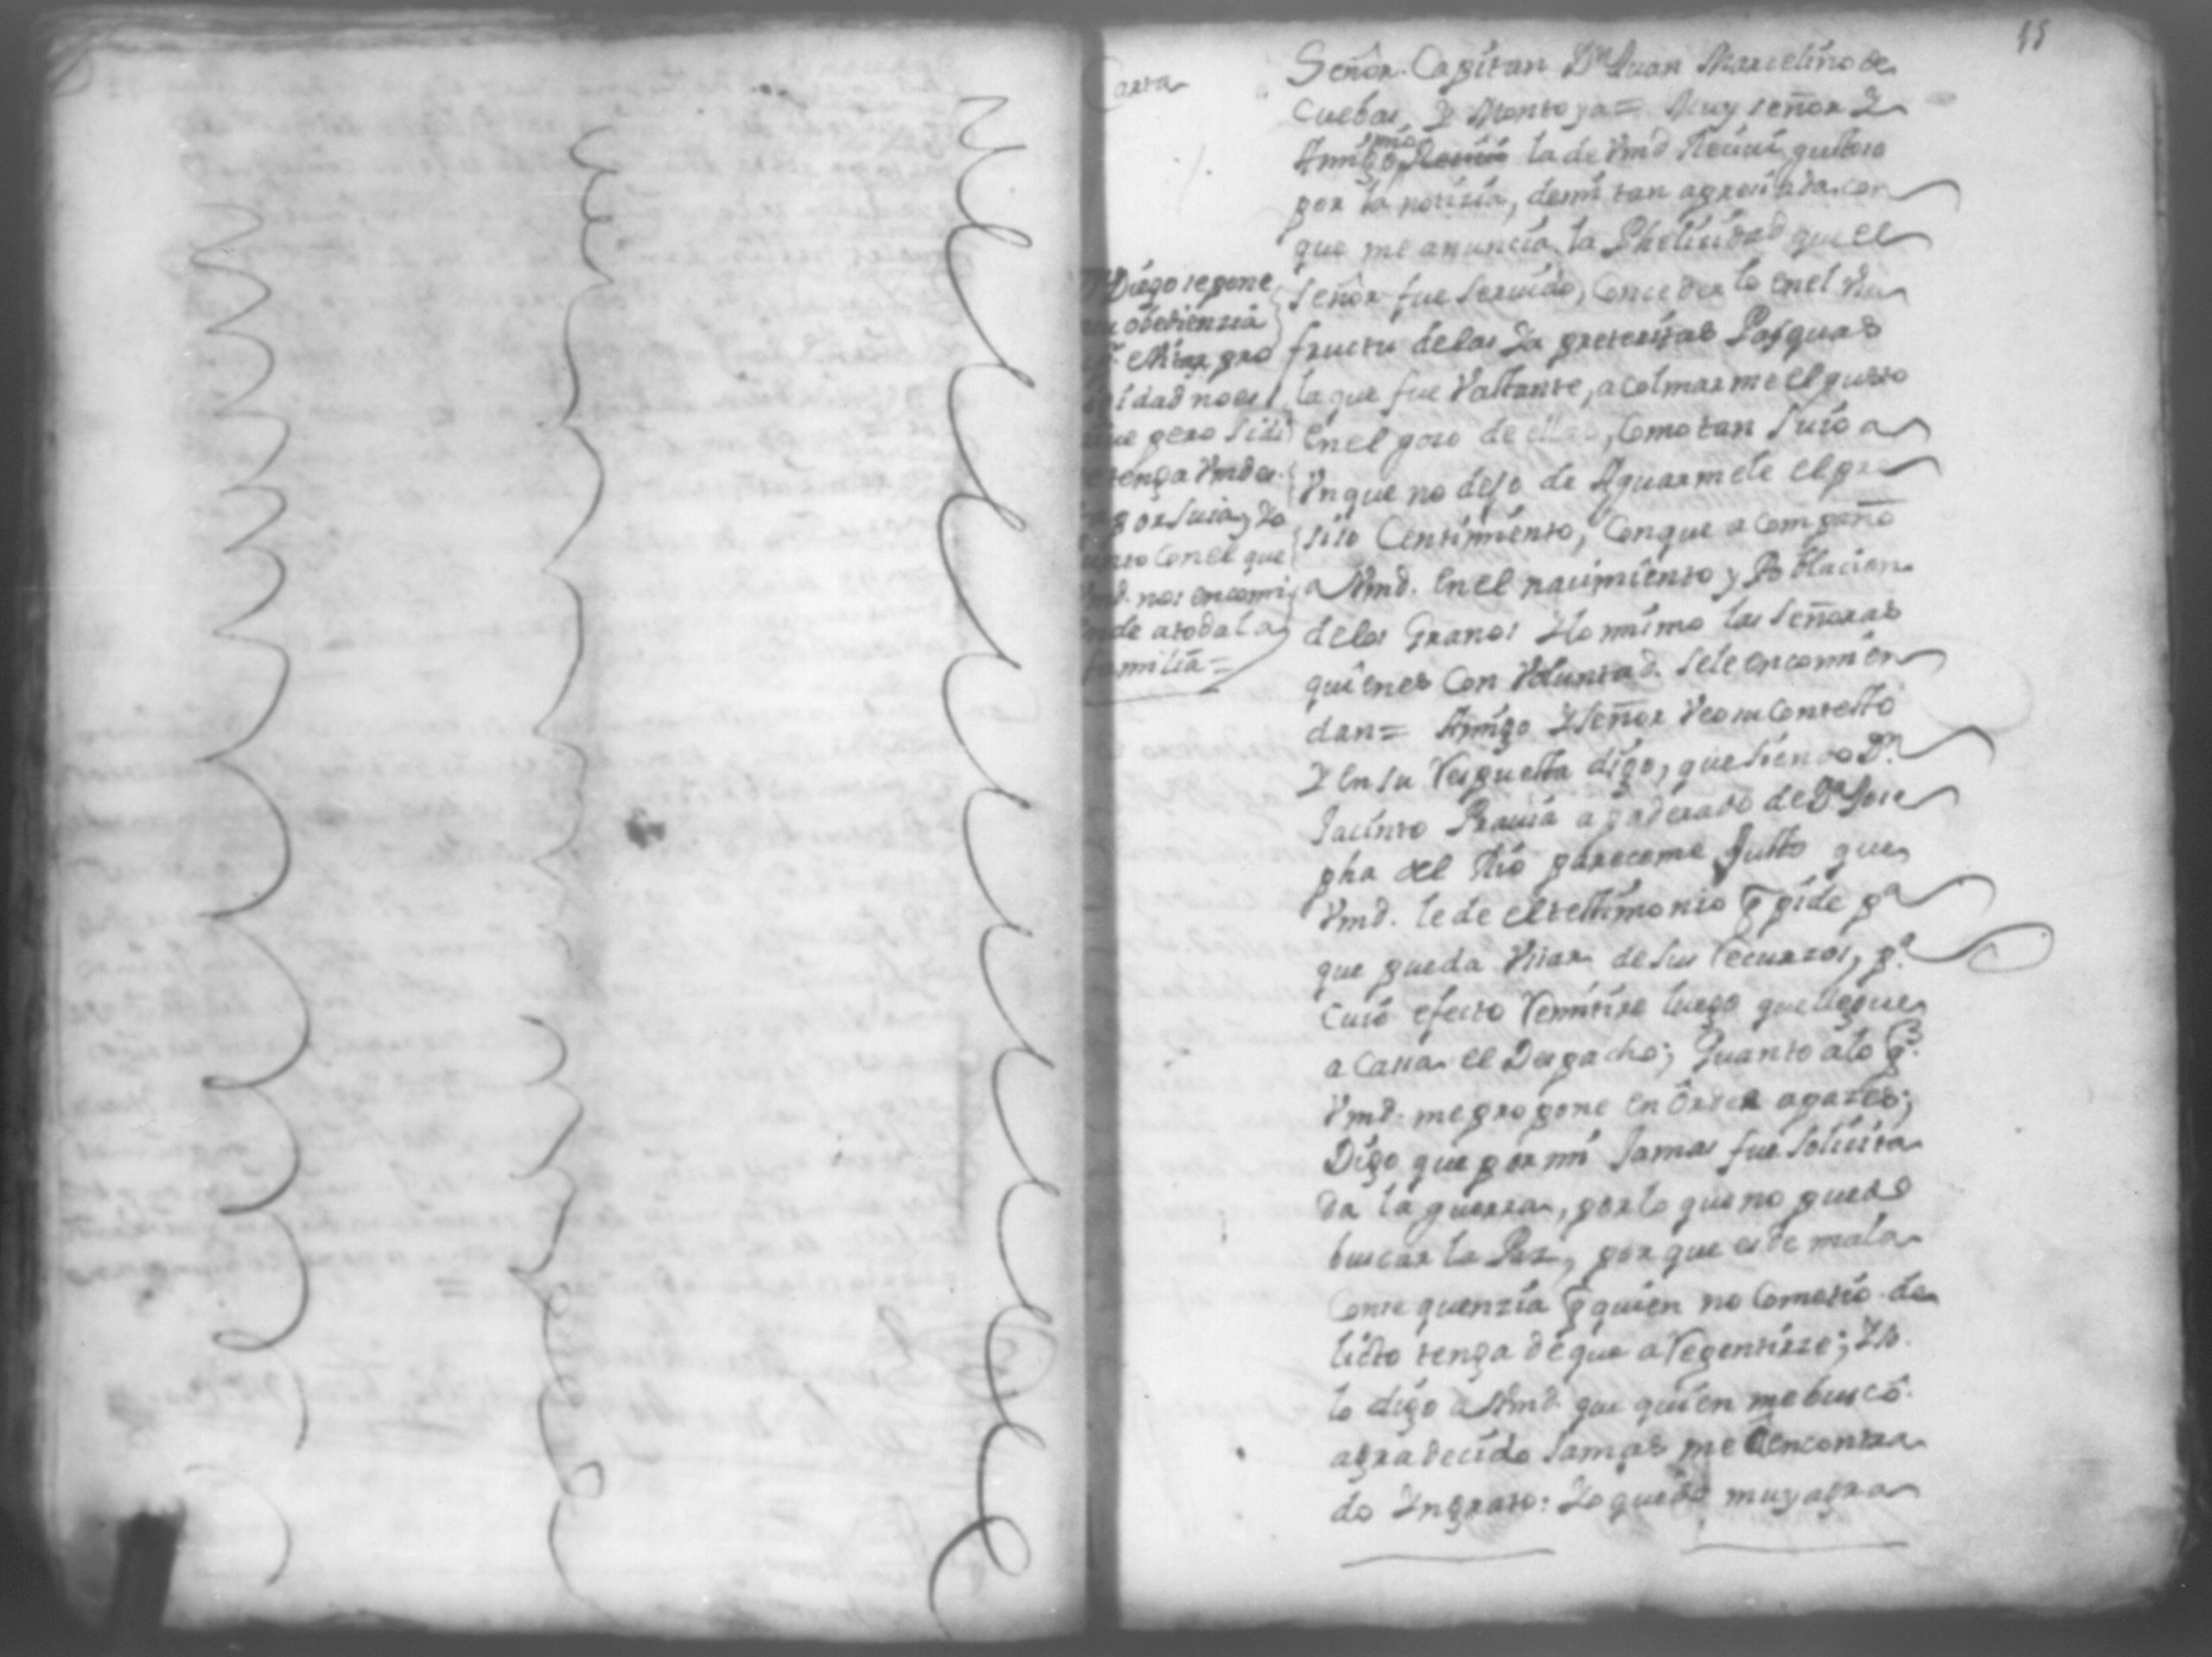 15
Carta
Señor Capitan Dn Juan Marcelino de
Cuebas, Y Montoya = Muy señor Y
Amigo mio la de Vmd. Reciui, gustoso
por la notizia, demi tan apreciada con
que me anuncia la Phelicidad que el
Señor fue seruido, Concederle en el
fructu delas Ya preteritas Pasquas
la que fue Vastante, a colmarme el gusto
en el goso de ellas, Como tan Suio a
Vn que no dejo de Aguarmele el pre
siso Centimiento, Con que acompaño
a Vmd. en el nacimiento y Poblacion
delos Granos Ylo mismo las Señoras
quienes Con Voluntad. Sele encomien
dan = Amigo Y Señor Veo su Contesto
Y en su Respuesta digo, que siendo Dn.
Jacinto Prauia apoderado de Da Jose
pha del Rio pareceme Justo que
Vmd. le de el testimonio q pide pa
que pueda Vsar de sus recurzos, pa.
Cuio efecto remitire luego que llegue
a Casa el Despacho; Quanto alo q.
Vmd. me propone en Orden apazes;
Digo que por mi Jamas fue Solicita
da la guerra, por lo que no puedo
buscar la Paz, por que es de mala
Conse quenzia q quien no Cometio de
licto tenga de que a Repentirze; Yo
lo digo a Vmd. que quien me buscó
agradecido Jamas me a encontra
do Yngrato: Yo quedo muy agra
Diego se pone
obedienzia
pro
idad no es
que pero Side
tenga Vmd
por Suia, Yo
Con el que
Vmd. nos encomi
ende atoda la
familia =